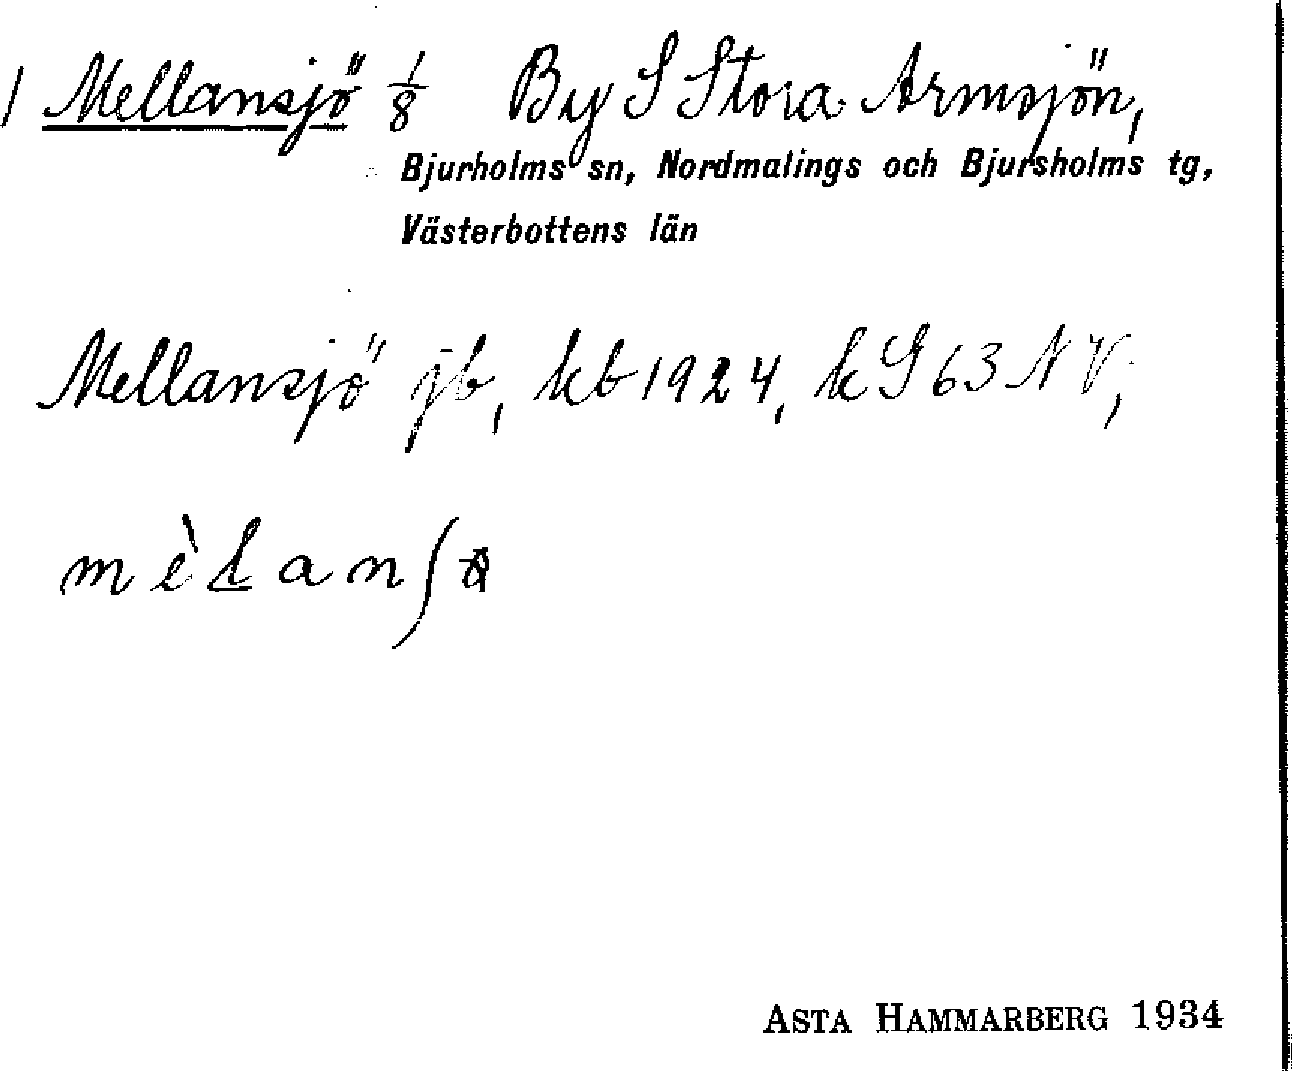 1 Mellansjö 1/8 By S Stora Armsjön,
Bjurholms sn, Nordmalings och Bjursholms tg,
Västerbottens län
Mellansjö jb, kb 1924, k G 63 NV,
mèlan
ASTA HAMMARBERG 1934